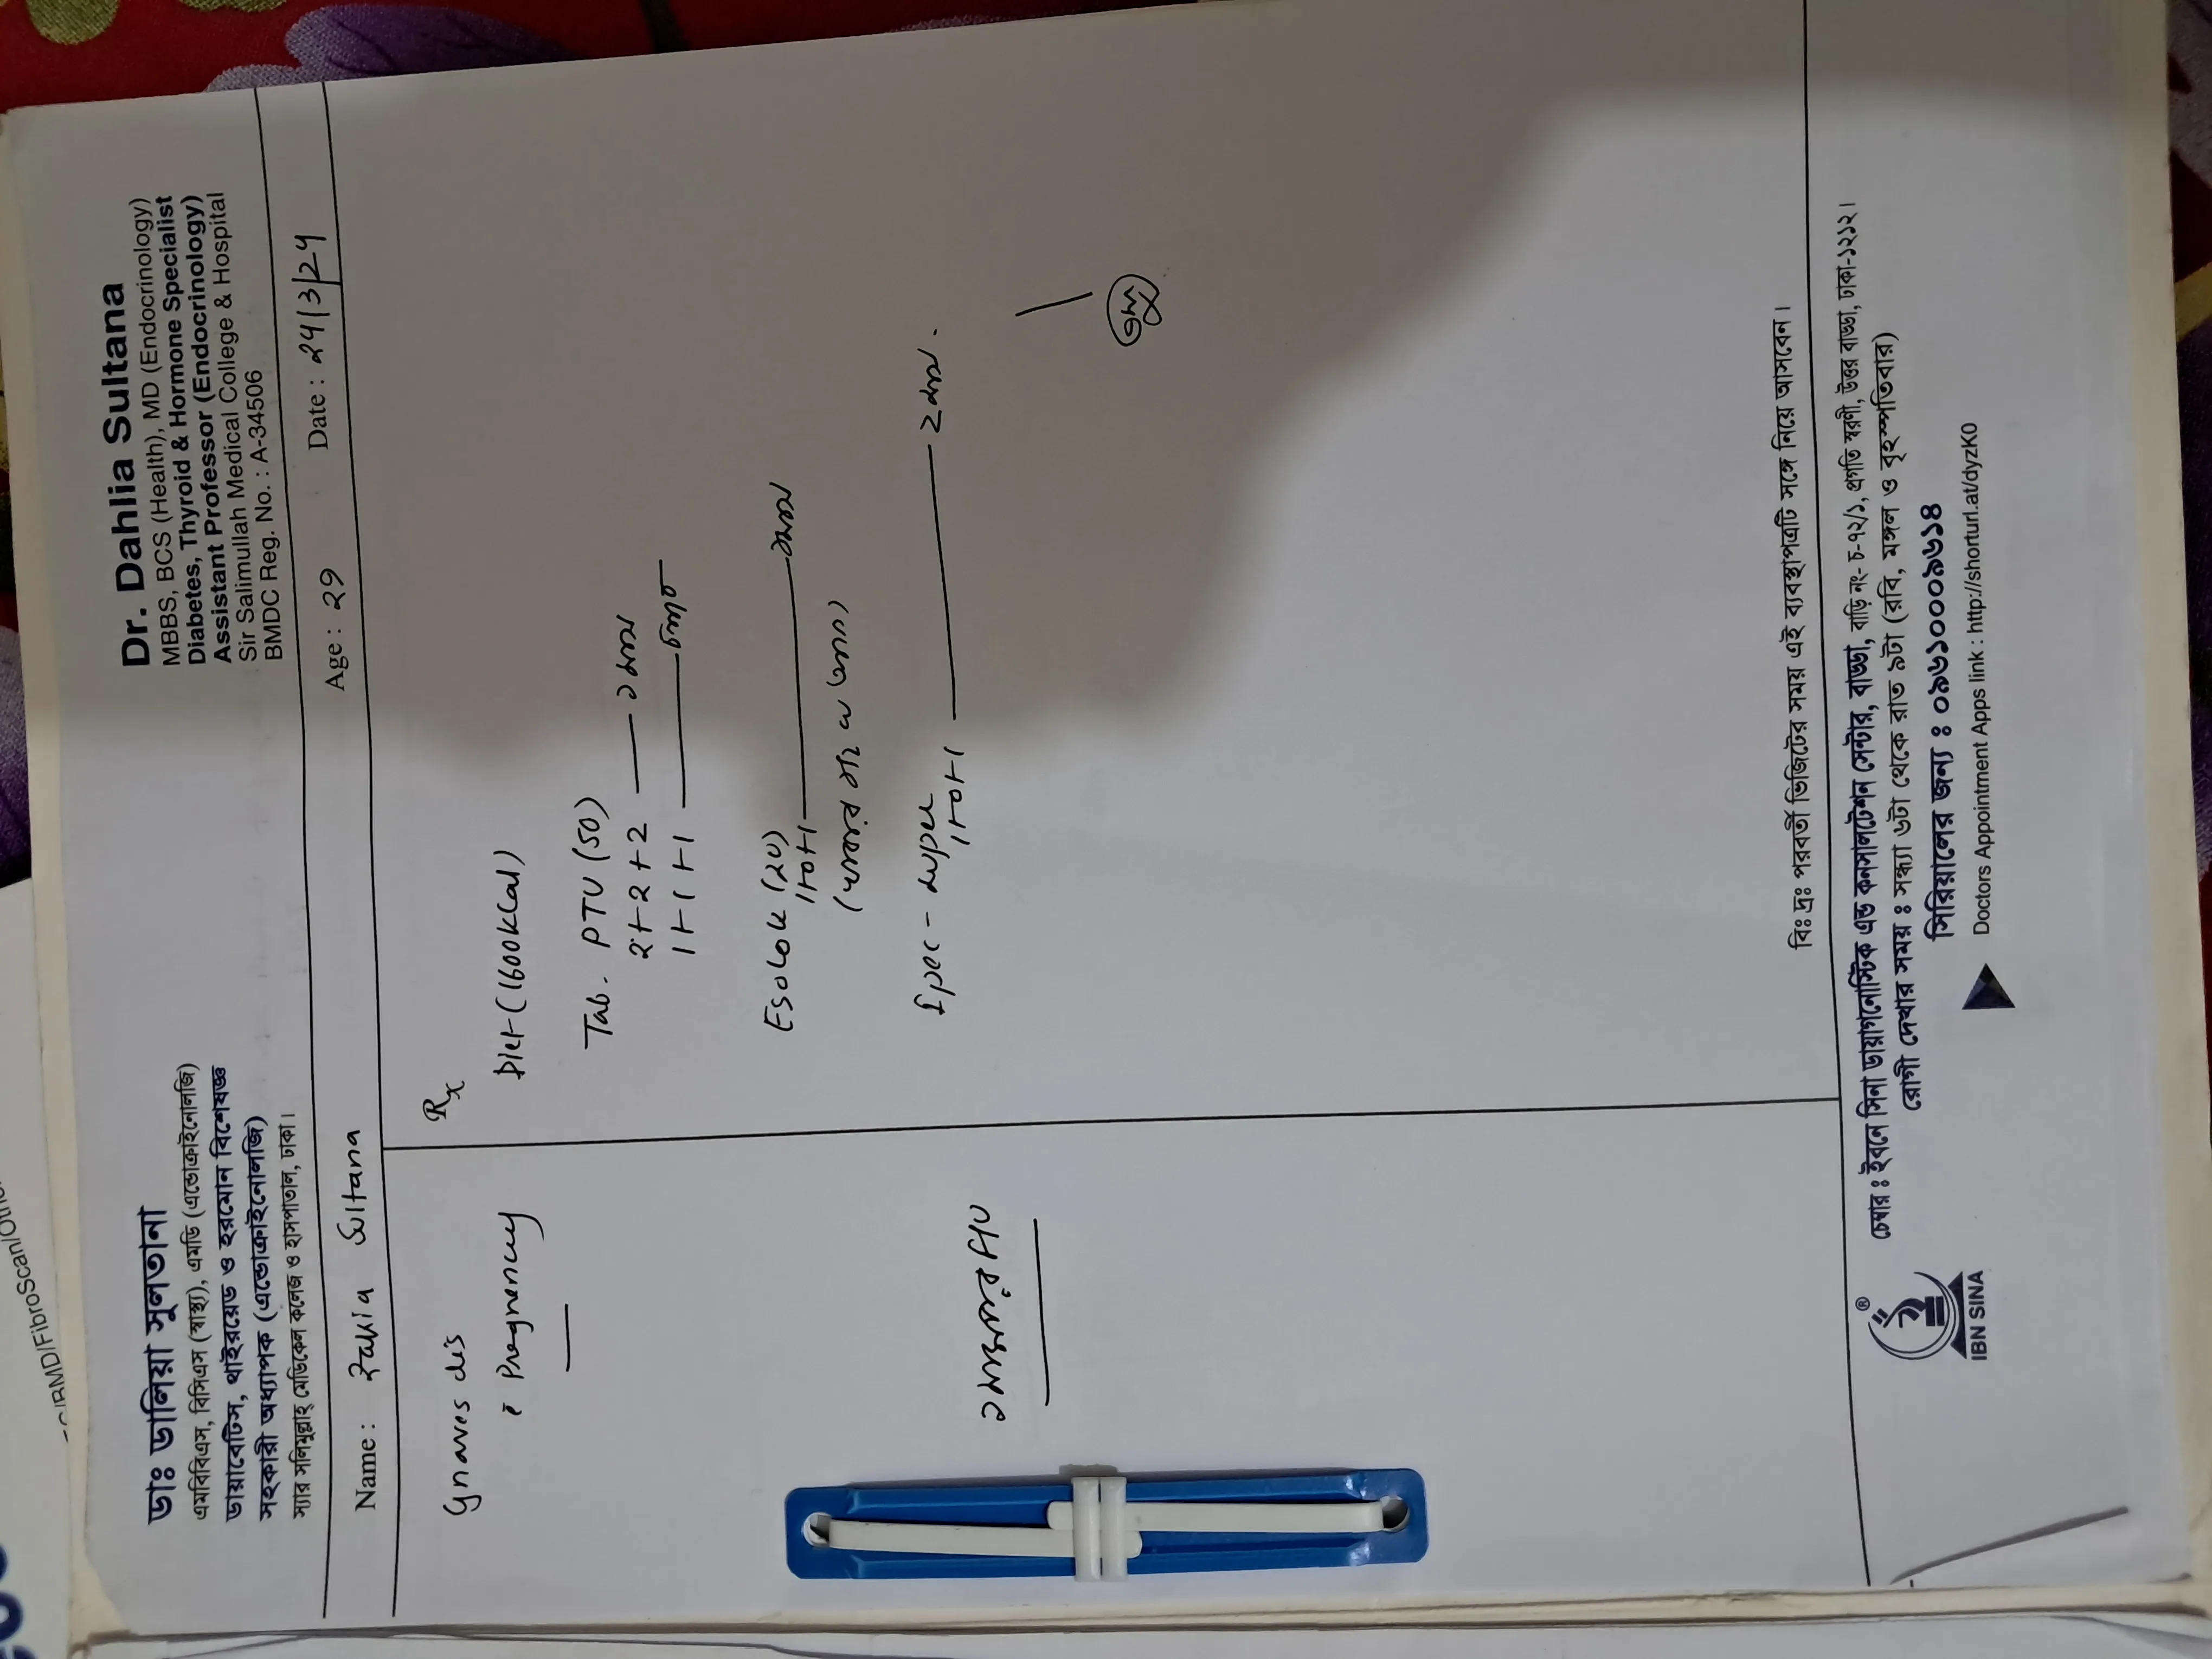 ডাঃ ডালিয়া সুলতানা
এমবিবিএস, বিসিএস (স্বাস্থ্য), এমডি (এন্ডোক্রাইনোলজি)
ডায়াবেটিস, থাইরয়েড ও হরমোন বিশেষজ্ঞ
সহকারী অধ্যাপক (এন্ডোক্রাইনোলজি)
স্যার সলিমুল্লাহ্ মেডিকেল কলেজ ও হাসপাতাল, ঢাকা।
Dr. Dahlia Sultana
MBBS, BCS (Health), MD (Endocrinology)
Diabetes, Thyroid & Hormone Specialist
Assistant Professor (Endocrinology)
Sir Salimullah Medical College & Hospital
BMDC Reg. No. : A-34506
Name : Zakia Sultana Age : 29 Date : 24/3/24
Graves dis
c̄ Pregnency
২ মাস পর F/U
Rx
Diet (1600kcal)
Tab. PTU (50)
2+2+2 — ১ মাস
1+1+1 — চলবে
Esolok (20)
1+0+1 — মাস
1+0+1 — 2 মাস.
বিঃ দ্রঃ পরবর্তী ভিজিটের সময় এই ব্যবস্থাপত্রটি সঙ্গে নিয়ে আসবেন।
IBN SINA
চেম্বার : ইবনে সিনা ডায়াগনোস্টিক এন্ড কনসালটেশন সেন্টার, বাড্ডা, বাড়ি নং- চ-৭২/১, প্রগতি স্বরণী, উত্তর বাড্ডা, ঢাকা-১২১২।
রোগী দেখার সময় : সন্ধ্যা ৬টা থেকে রাত ৯টা (রবি, মঙ্গল ও বৃহস্পতিবার)
সিরিয়ালের জন্য : ০৯৬১০০০৯৬১৪
Doctors Appointment Apps link : http://shorturl.at/dyzK0